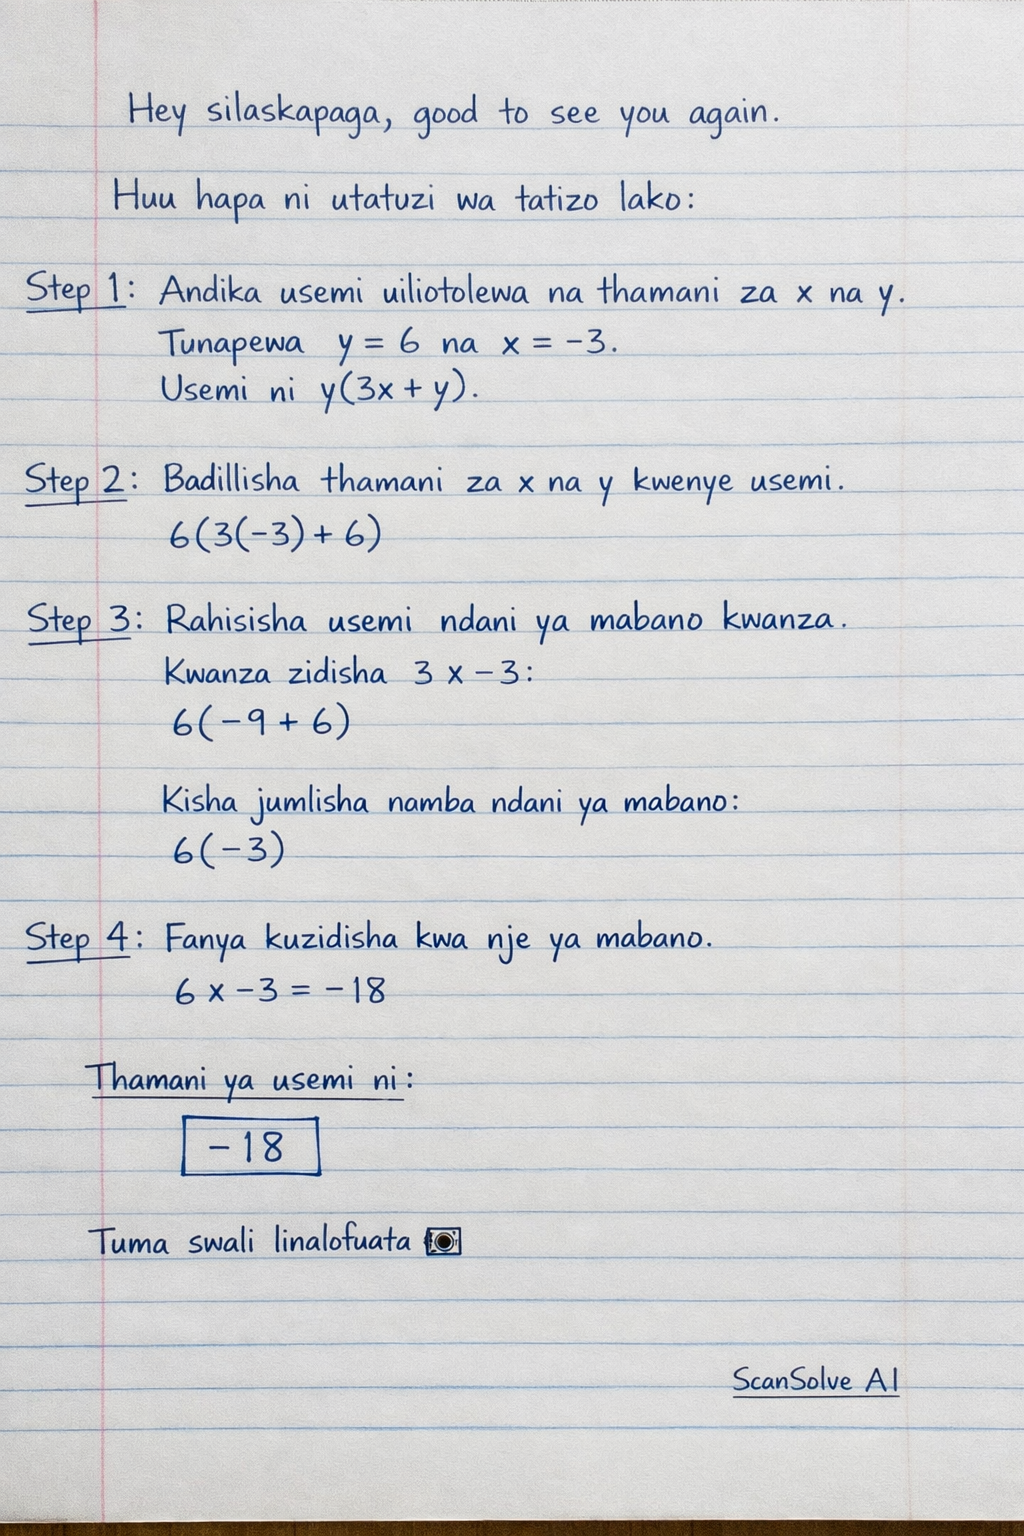 Hey silaskapaga, good to see you again.
Huu hapa ni utatuzi wa tatizo lako:
Step 1: Andika usemi uiliotolewa na thamani za x na y.
Tunapewa y = 6 na x = -3.
Usemi ni y(3x + y).
Step 2: Badillisha thamani za x na y kwenye usemi.
6(3(-3) + 6)
Step 3: Rahisisha usemi ndani ya mabano kwanza.
Kwanza zidisha 3 x -3:
6(-9 + 6)
Kisha jumlisha namba ndani ya mabano:
6(-3)
Step 4: Fanya kuzidisha kwa nje ya mabano.
6 x -3 = -18
Thamani ya usemi ni:
-18
Tuma swali linalofuata 📷
ScanSolve AI